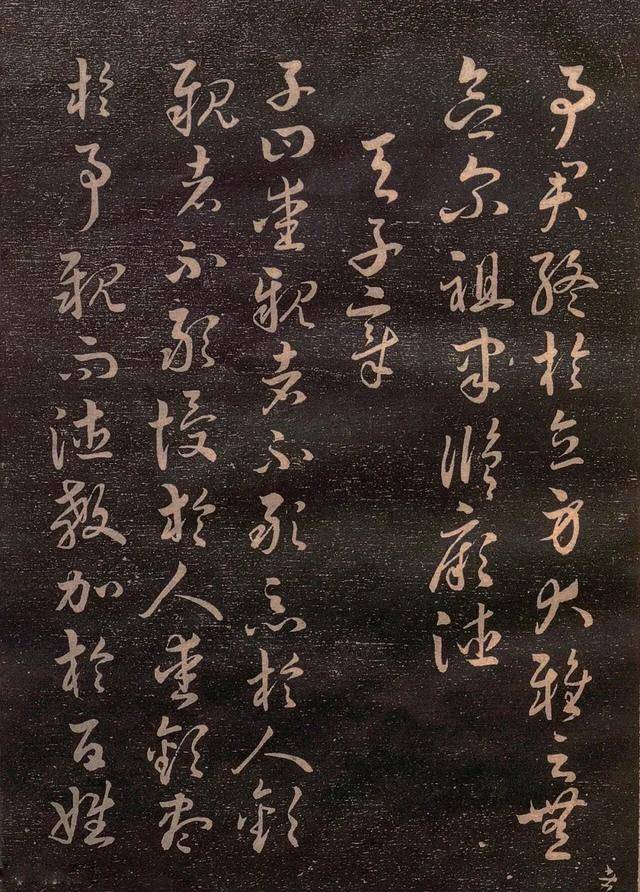 事君終於立身大雅云無
念爾祖聿脩厥德
天子章
子曰愛親者不敢惡於人敬
親者不敢慢於人愛敬盡
於事親而德教加於百姓